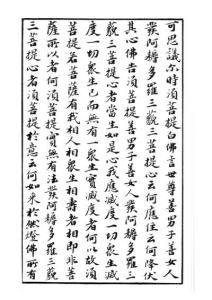 可思議尒時須菩提白佛言世尊善男子善女人
發阿耨多羅三藐三菩提心云何應住云何降伏
其心佛告須菩提善男子善女人發阿耨多羅三
藐三菩提心者當生如是心我應滅度一切衆生滅
度一切衆生已而無有一衆生實滅度者何以故須
菩提若菩薩有我相人相衆生相壽者相即非菩
薩所以者何須菩提實無有法發阿耨多羅三藐
三菩提心者須菩提於意云何如来於然燈佛所有